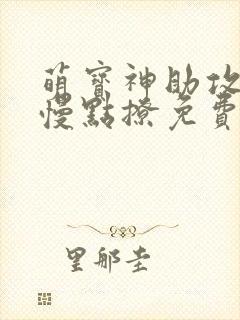 萌寶神助攻
慢點撩免費
里那圭